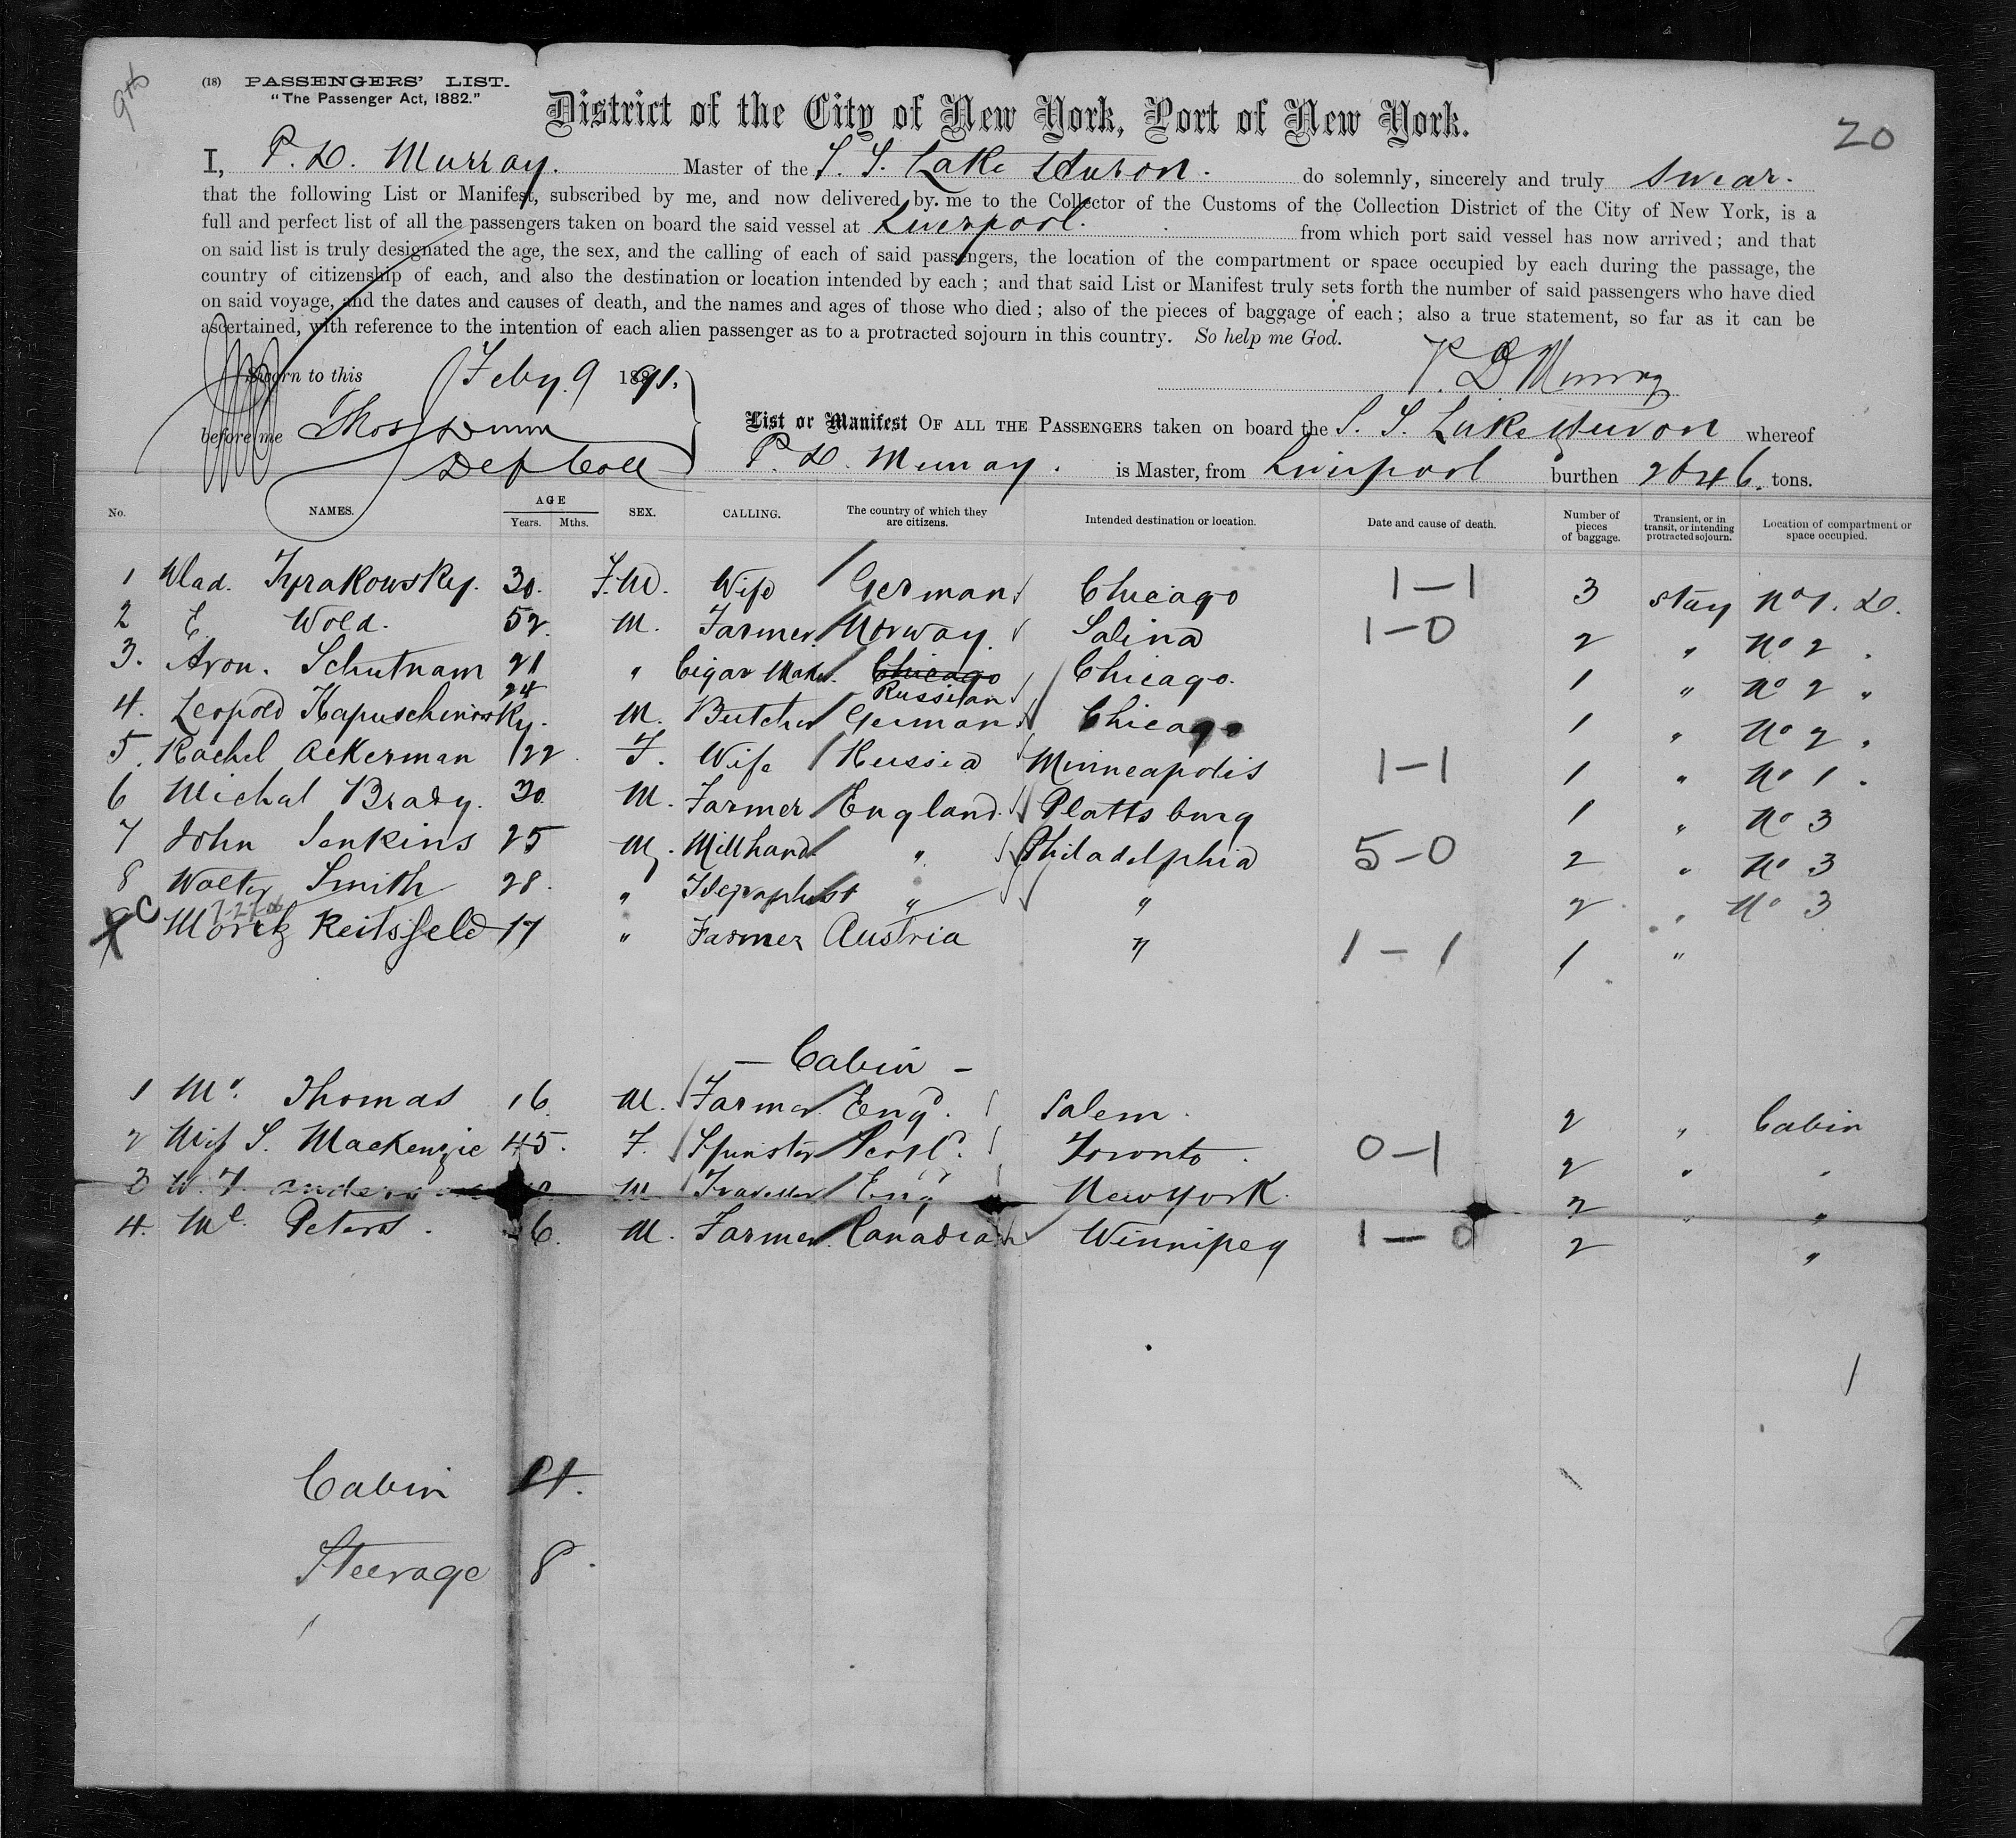 9th
(18) PASSENGERS' LIST.
"The Passenger Act, 1882."
District of the City of New York, Port of New York.
20
I, P. D. Murray. Master of the S. S. Lake Huron. do solemnly, sincerely and truly swear.
that the following List or Manifest, subscribed by me, and now delivered by me to the Collector of the Customs of the Collection District of the City of New York, is a
full and perfect list of all the passengers taken on board the said vessel at Liverpool. from which port said vessel has now arrived; and that
on said list is truly designated the age, the sex, and the calling of each of said passengers, the location of the compartment or space occupied by each during the passage, the
country of citizenship of each, and also the destination or location intended by each; and that said List or Manifest truly sets forth the number of said passengers who have died
on said voyage, and the dates and causes of death, and the names and ages of those who died; also of the pieces of baggage of each; also a true statement, so far as it can be
ascertained, with reference to the intention of each alien passenger as to a protracted sojourn in this country. So help me God.
Sworn to this Feby. 9 1891. P. D Murray
before me Thos Dunn
Dep Coll
List or Manifest OF ALL THE PASSENGERS taken on board the S. S. Lake Huron whereof
P. D. Murray. is Master, from Liverpool burthen 2646. tons.
No. NAMES. AGE Years. Mths. SEX. CALLING. The country of which they are citizens. Intended destination or location. Date and cause of death. Number of pieces of baggage. Transient, or in transit, or intending protracted sojourn. Location of compartment or space occupied.
1 Wlad. Tyrakowsky. 30. F. Wife German Chicago 1-1 3 stay No 1. D.
2 E. Wold. 52. M. Farmer Norway. Salina 1-0 2 " No 2 "
3. Aron. Schutnam 21 " Cigar Maker. Chicago Russian Chicago. 1 " No 2 "
4. Leopold Kapuschinosky. 24 M. Butcher German Chicago 1 " No 2 "
5. Rachel Ackerman 22 F. Wife Russia Minneapolis 1-1 1 " No 1 "
6 Michal Brady. 30. M. Farmer England. Plattsburg 1 " No 3
7 John Jenkins 25 M. Millhand " Philadelphia 5-0 2 " No 3
8 Walter Smith 28. " Telegraphist " " 2 " No 3
X C Moritz Reitsfeld 17 " Farmer Austria " 1-1 1 "
- Cabin -
1 Mr. Thomas 16. M. Farmer Engd. Salem. 2 " Cabin
2 Miss S. Mackenzie 45. F. Spinster Scotd. Toronto. 0-1 2 " "
3 W. F. M. Traveller Engd New York. 2 " "
4. Mr. Peters. 6. M. Farmer. Canadian Winnipeg 1-0 2 "
1
Cabin 4.
Steerage 8.